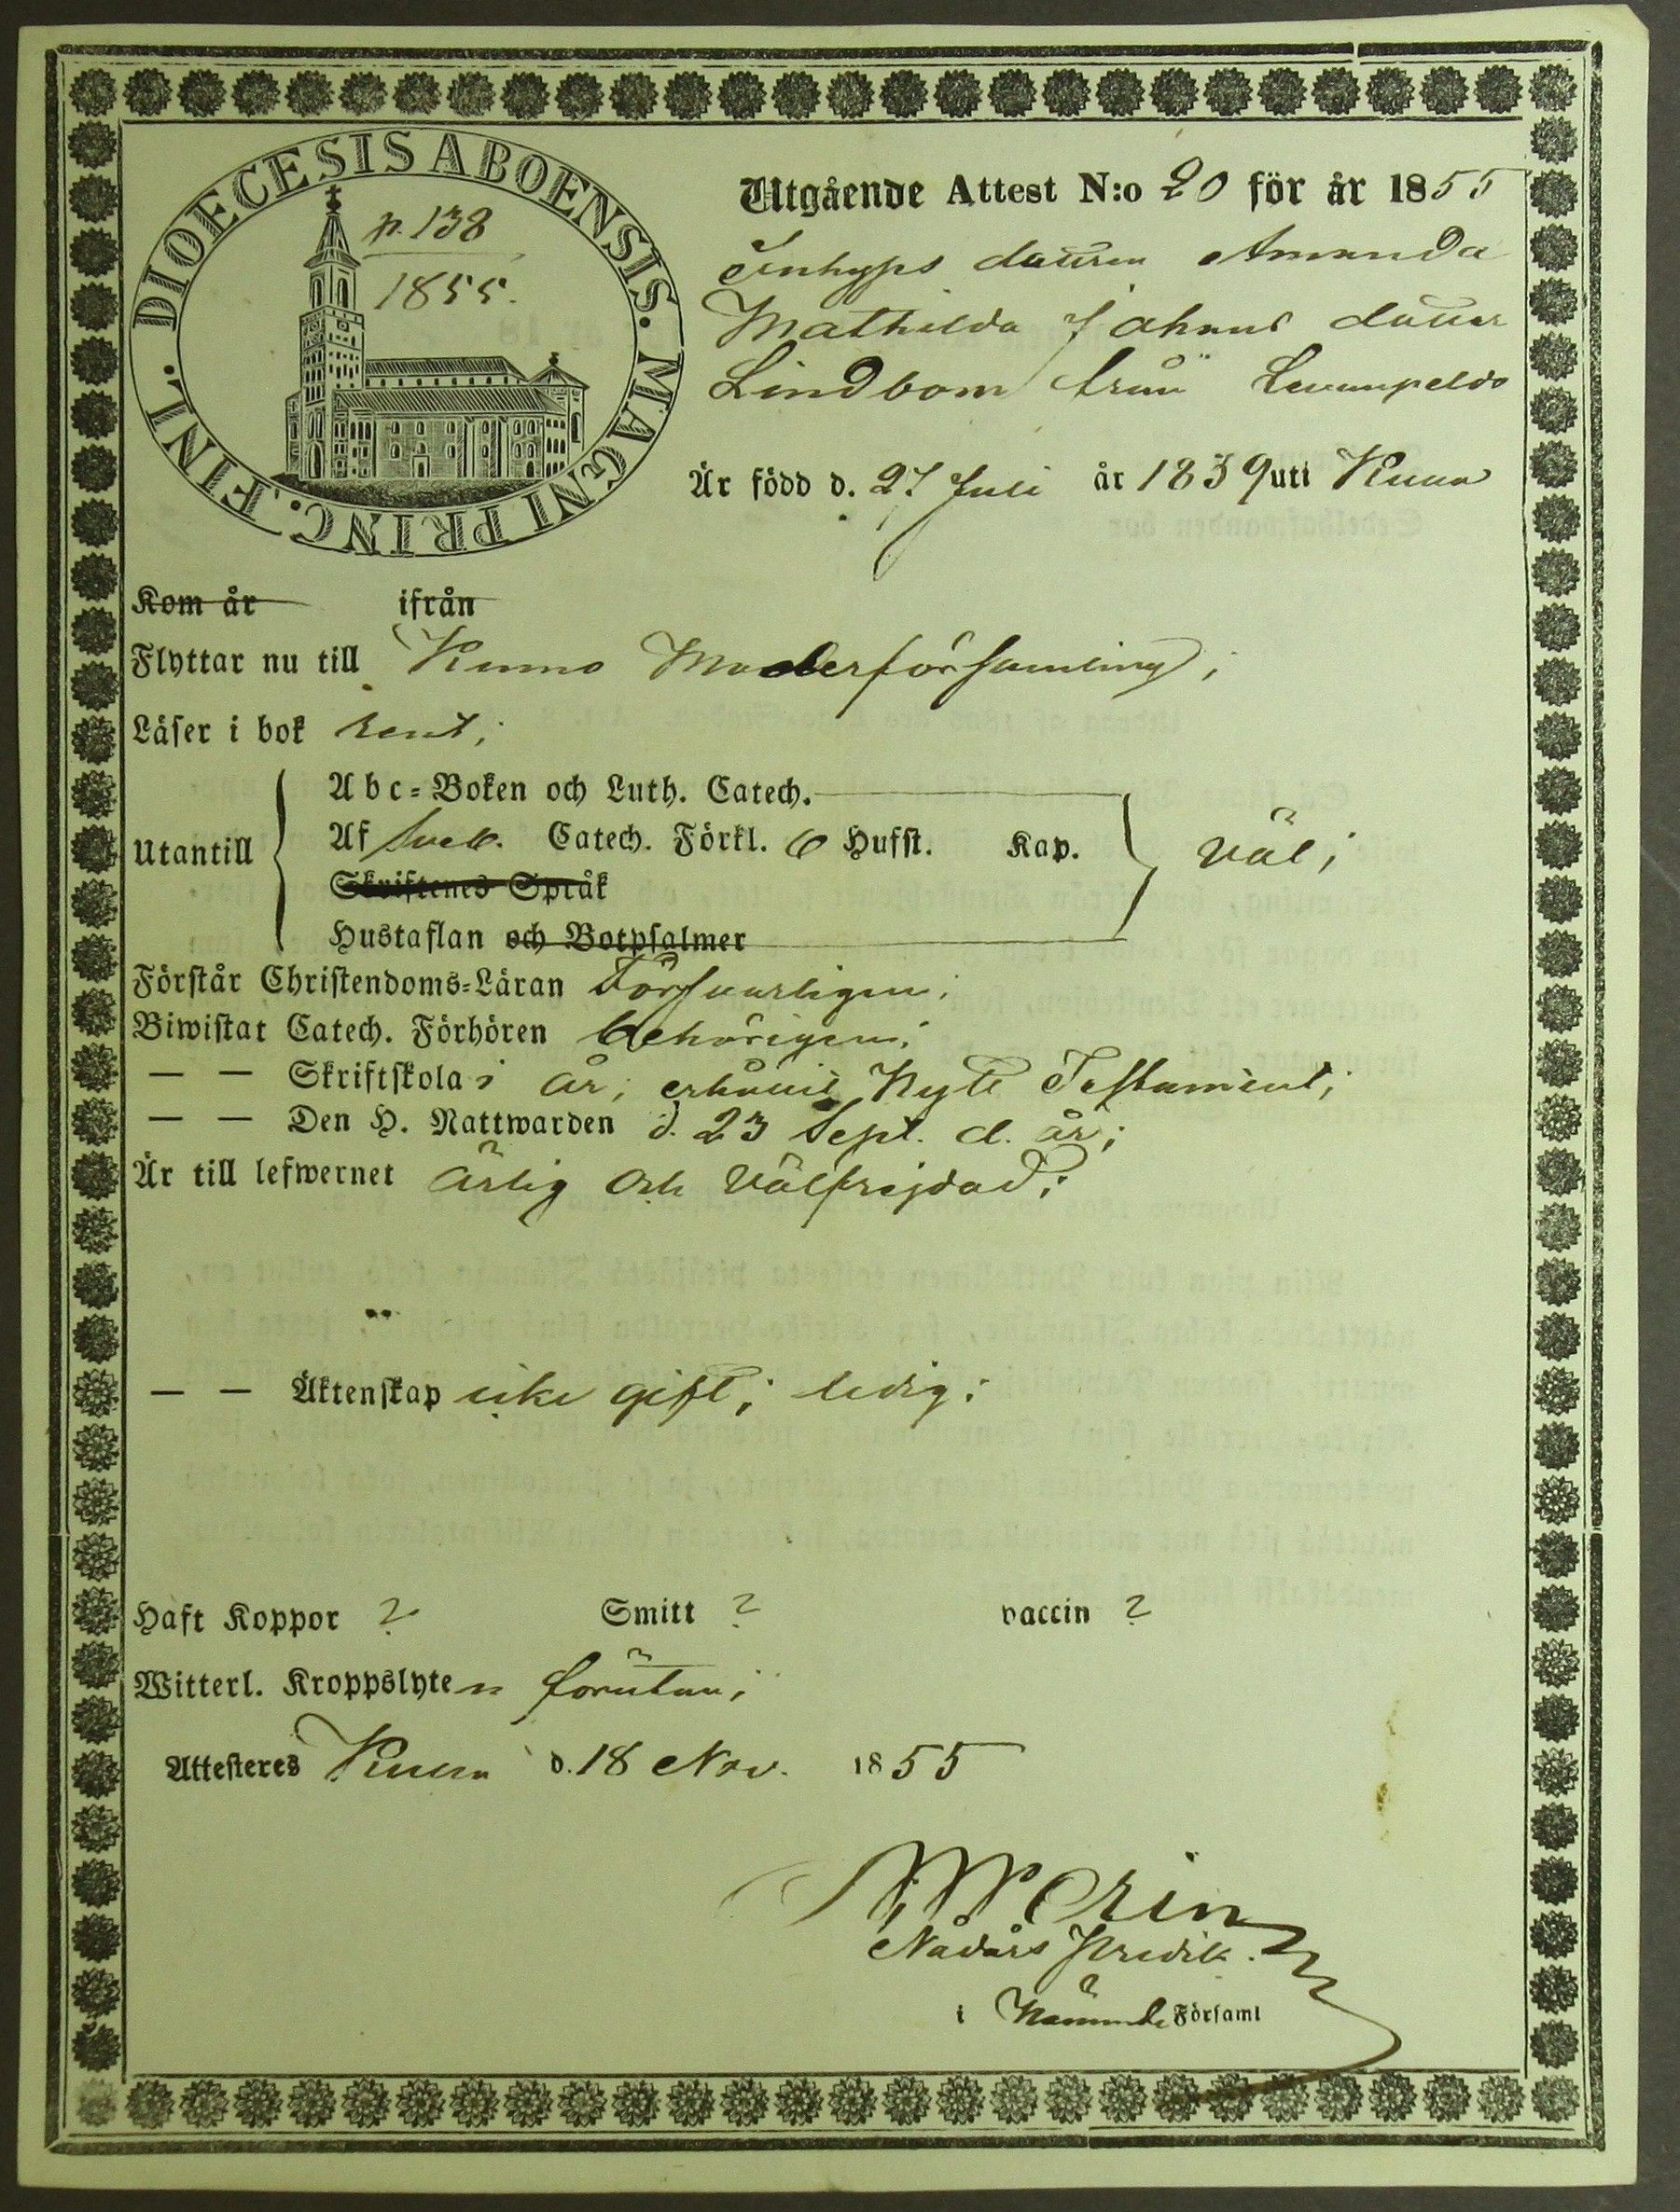 DIOECESIS ABOENSIS. MAGNI PRINC. FINL.
p. 138
1855.
Utgående Attest N:o 20 för år 1855
Inhyses dottren Amanda
Mathilda Johans dotter
Lindbom från
Är född d. 27 Juli år 1839 uti
Kom år ifrån
Flyttar nu till Kumo Moderförsamling;
Läser i bok rent;
Abc-Boken och Luth. Catech.
Utantill
Af Sveb. Catech. Förkl. 6 Hufst. Kap.
väl;
Skriftenes Språk
Hustaflan och Botpsalmer
Förstår Christendoms-Läran Försvarligen;
Biwistat Catech. Förhören behörigen;
— — Skriftskola i år; erhållit Nytt Testament;
— — Den H. Nattwarden d. 23 Sept. d. år;
Är till lefwernet ärlig och välfrejdad;
— — Äktenskap icke gift; ledig;
Haft Koppor ? Smitt ? vaccin ?
Witterl. Kroppslyten förutan;
Attesteres d. 18 Nov. 1855
Nådårs Predik.
i Nämnde Församl